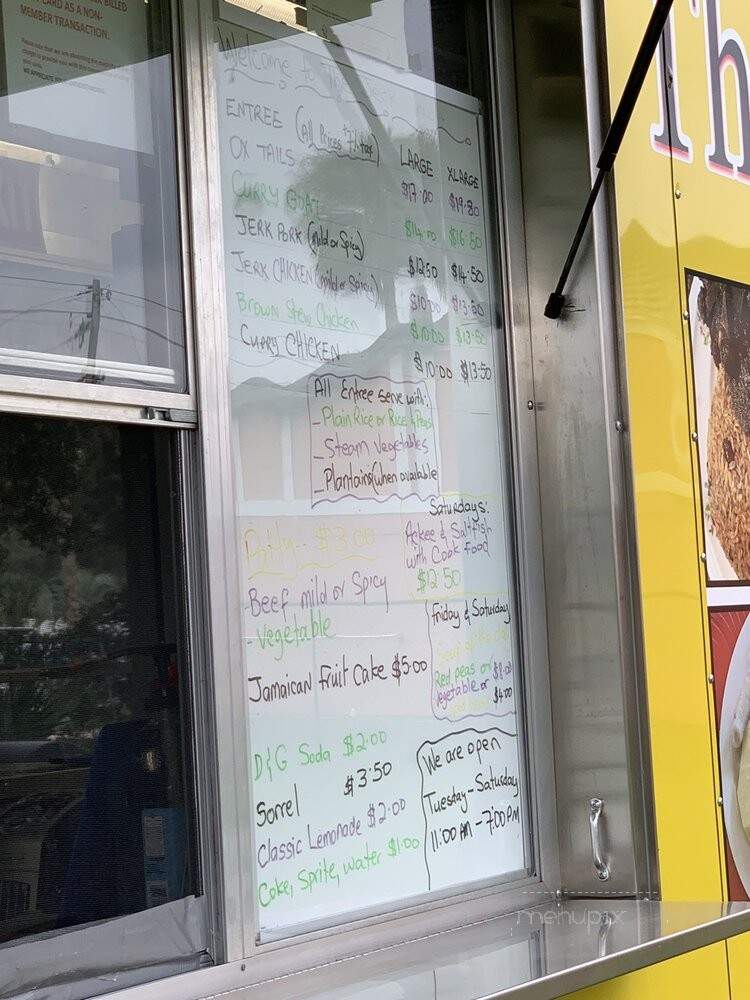 BILLED
CARD AS A NON-
MEMBER TRANSACTION.
Welcome to The
ENTREE (All Prices + Tax)
LARGE XLARGE
OX TAILS $17.00 $19.80
CURRY GOAT $14.00 $16.80
JERK PORK (Mild or Spicy) $12.50 $14.50
JERK CHICKEN (mild or Spicy) $10.00 $13.50
Brown Stew Chicken $10.00 $13.50
CURRY CHICKEN $10.00 $13.50
All Entree serve with:
- Plain Rice or Rice & Peas
- Steam Vegetables
- Plantains (when available
Saturdays:
Ackee & Saltfish
with Cook food
$12.50
Patty - $3.00
- Beef mild or Spicy
- vegetable
Friday & Saturday
Soup of the day
Red peas or $8.00
vegetable or $4.00
Jamaican Fruit Cake $5.00
D&G Soda $2.00
Sorrel $3.50
Classic Lemonade $2.00
Coke, Sprite, water $1.00
We are open
Tuesday - Saturday
11:00 AM - 7:00 PM
Th
menupix